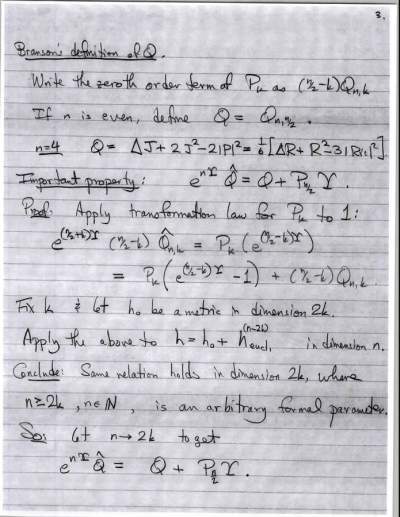 3.
Branson's definition of Q.
Write the zeroth order term of Pₖ as (n/2-k)Qₙ,ₖ
If n is even, define Q = Qₙ,ₙ/₂.
n=4 Q = ΔJ + 2J² - 2|P|² = 1/6[ΔR + R² - 3|Ric|²]
Important property: e^{nϒ} Q̂ = Q + P_{n/2} ϒ.
Proof: Apply transformation law for Pₖ to 1:
e^{(n/2+k)ϒ} (n/2-k) Q̂ₙ,ₖ = Pₖ(e^{(n/2-k)ϒ})
= Pₖ(e^{(n/2-k)ϒ} - 1) + (n/2-k)Qₙ,ₖ.
Fix k & let h₀ be a metric in dimension 2k.
Apply the above to h = h₀ + h_{eucl}^{(n-2k)} in dimension n.
Conclude: Same relation holds in dimension 2k, where
n≥2k, n∈ℕ, is an arbitrary formal parameter.
So: let n→2k to get
e^{nϒ} Q̂ = Q + P_{n/2} ϒ.